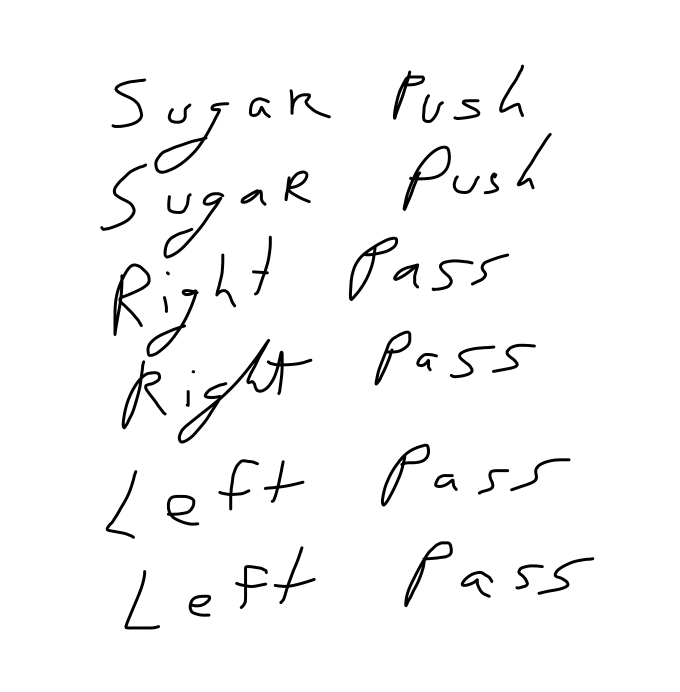 Sugar Push
Sugar Push
Right Pass
Right Pass
Left Pass
Left Pass